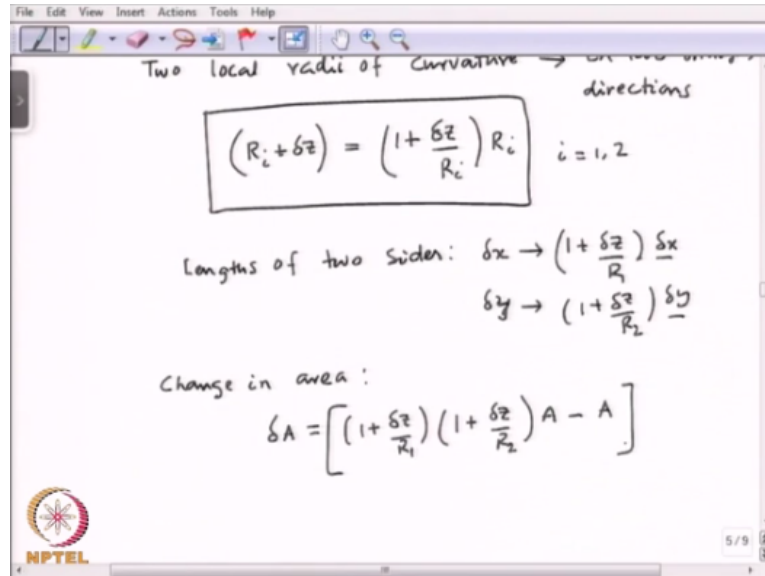 File Edit View Insert Actions Tools Help
Two local radii of curvature →
directions
(Ri + δz) = (1 + δz/Ri) Ri i = 1, 2
Lengths of two sides: δx → (1 + δz/R1) δx
δy → (1 + δz/R2) δy
Change in area:
δA = [(1 + δz/R1)(1 + δz/R2) A - A]
NPTEL
5/9